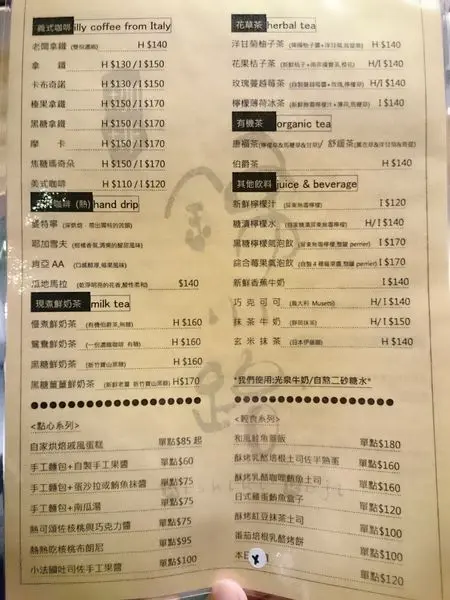 義式咖啡 illy coffee from Italy
老闆拿鐵 (雙份濃縮) H $140
拿 鐵 H $130 / I $150
卡布奇諾 H $130 / I $150
榛果拿鐵 H $150 / I $170
黑糖拿鐵 H $150 / I $170
摩 卡 H $150 / I $170
焦糖瑪奇朵 H $150 / I $170
美式咖啡 H $110 / I $120
咖啡 (熱) hand drip
曼特寧
耶加雪夫
肯亞AA
瓜地馬拉 $140
現煮鮮奶茶 milk tea
慢煮鮮奶茶 (有機伯爵茶,無糖) H $160
鴛鴦鮮奶茶 (一份濃縮咖啡 有糖) H $160
黑糖鮮奶茶 (新竹寶山黑糖) H $160
黑糖薑薑鮮奶茶 (新鮮老薑 新竹寶山黑糖) H $170
<點心系列>
自家烘焙戚風蛋糕 單點$85 起
手工麵包+自製手工果醬 單點$60
手工麵包+蛋沙拉或鮪魚抹醬 單點$75
手工麵包+南瓜湯 單點$75
熱可頌佐核桃與巧克力醬 單點$75
熱熱吃核桃布朗尼 單點$95
小法國吐司佐手工果醬 單點$100
花草茶 herbal tea
洋甘菊柚子茶 H $140
花果桔子茶 H/I $140
玫瑰蔓越莓茶 H/I $140
檸檬薄荷冰茶 I $140
有機茶 organic tea
康福茶 / 舒緩茶
伯爵茶 H $140
其他飲料 juice & beverage
新鮮檸檬汁 (屏東無毒檸檬) I $120
糖漬檸檬水 H/ I $140
黑糖檸檬氣泡飲 I $170
綜合莓果氣泡飲 I $170
新鮮香蕉牛奶 I $140
巧克可可 (義大利 Musetti) H/ I $140
抹茶牛奶 (靜岡抹茶) H/ I $150
玄米抹茶 (日本伊藤園) H $140
*我們使用:光泉牛奶/自熬二砂糖水*
<輕食系列>
和風鮭魚蓋飯 單點$180
酥烤乳酪培根土司佐半熟蛋 單點$160
酥烤乳酪咖哩鮪魚土司 單點$160
日式雞蛋鮪魚盒子 單點$120
酥烤紅豆抹茶土司 單點$100
番茄培根乳酪烤餅 單點$100
本日 單點$120